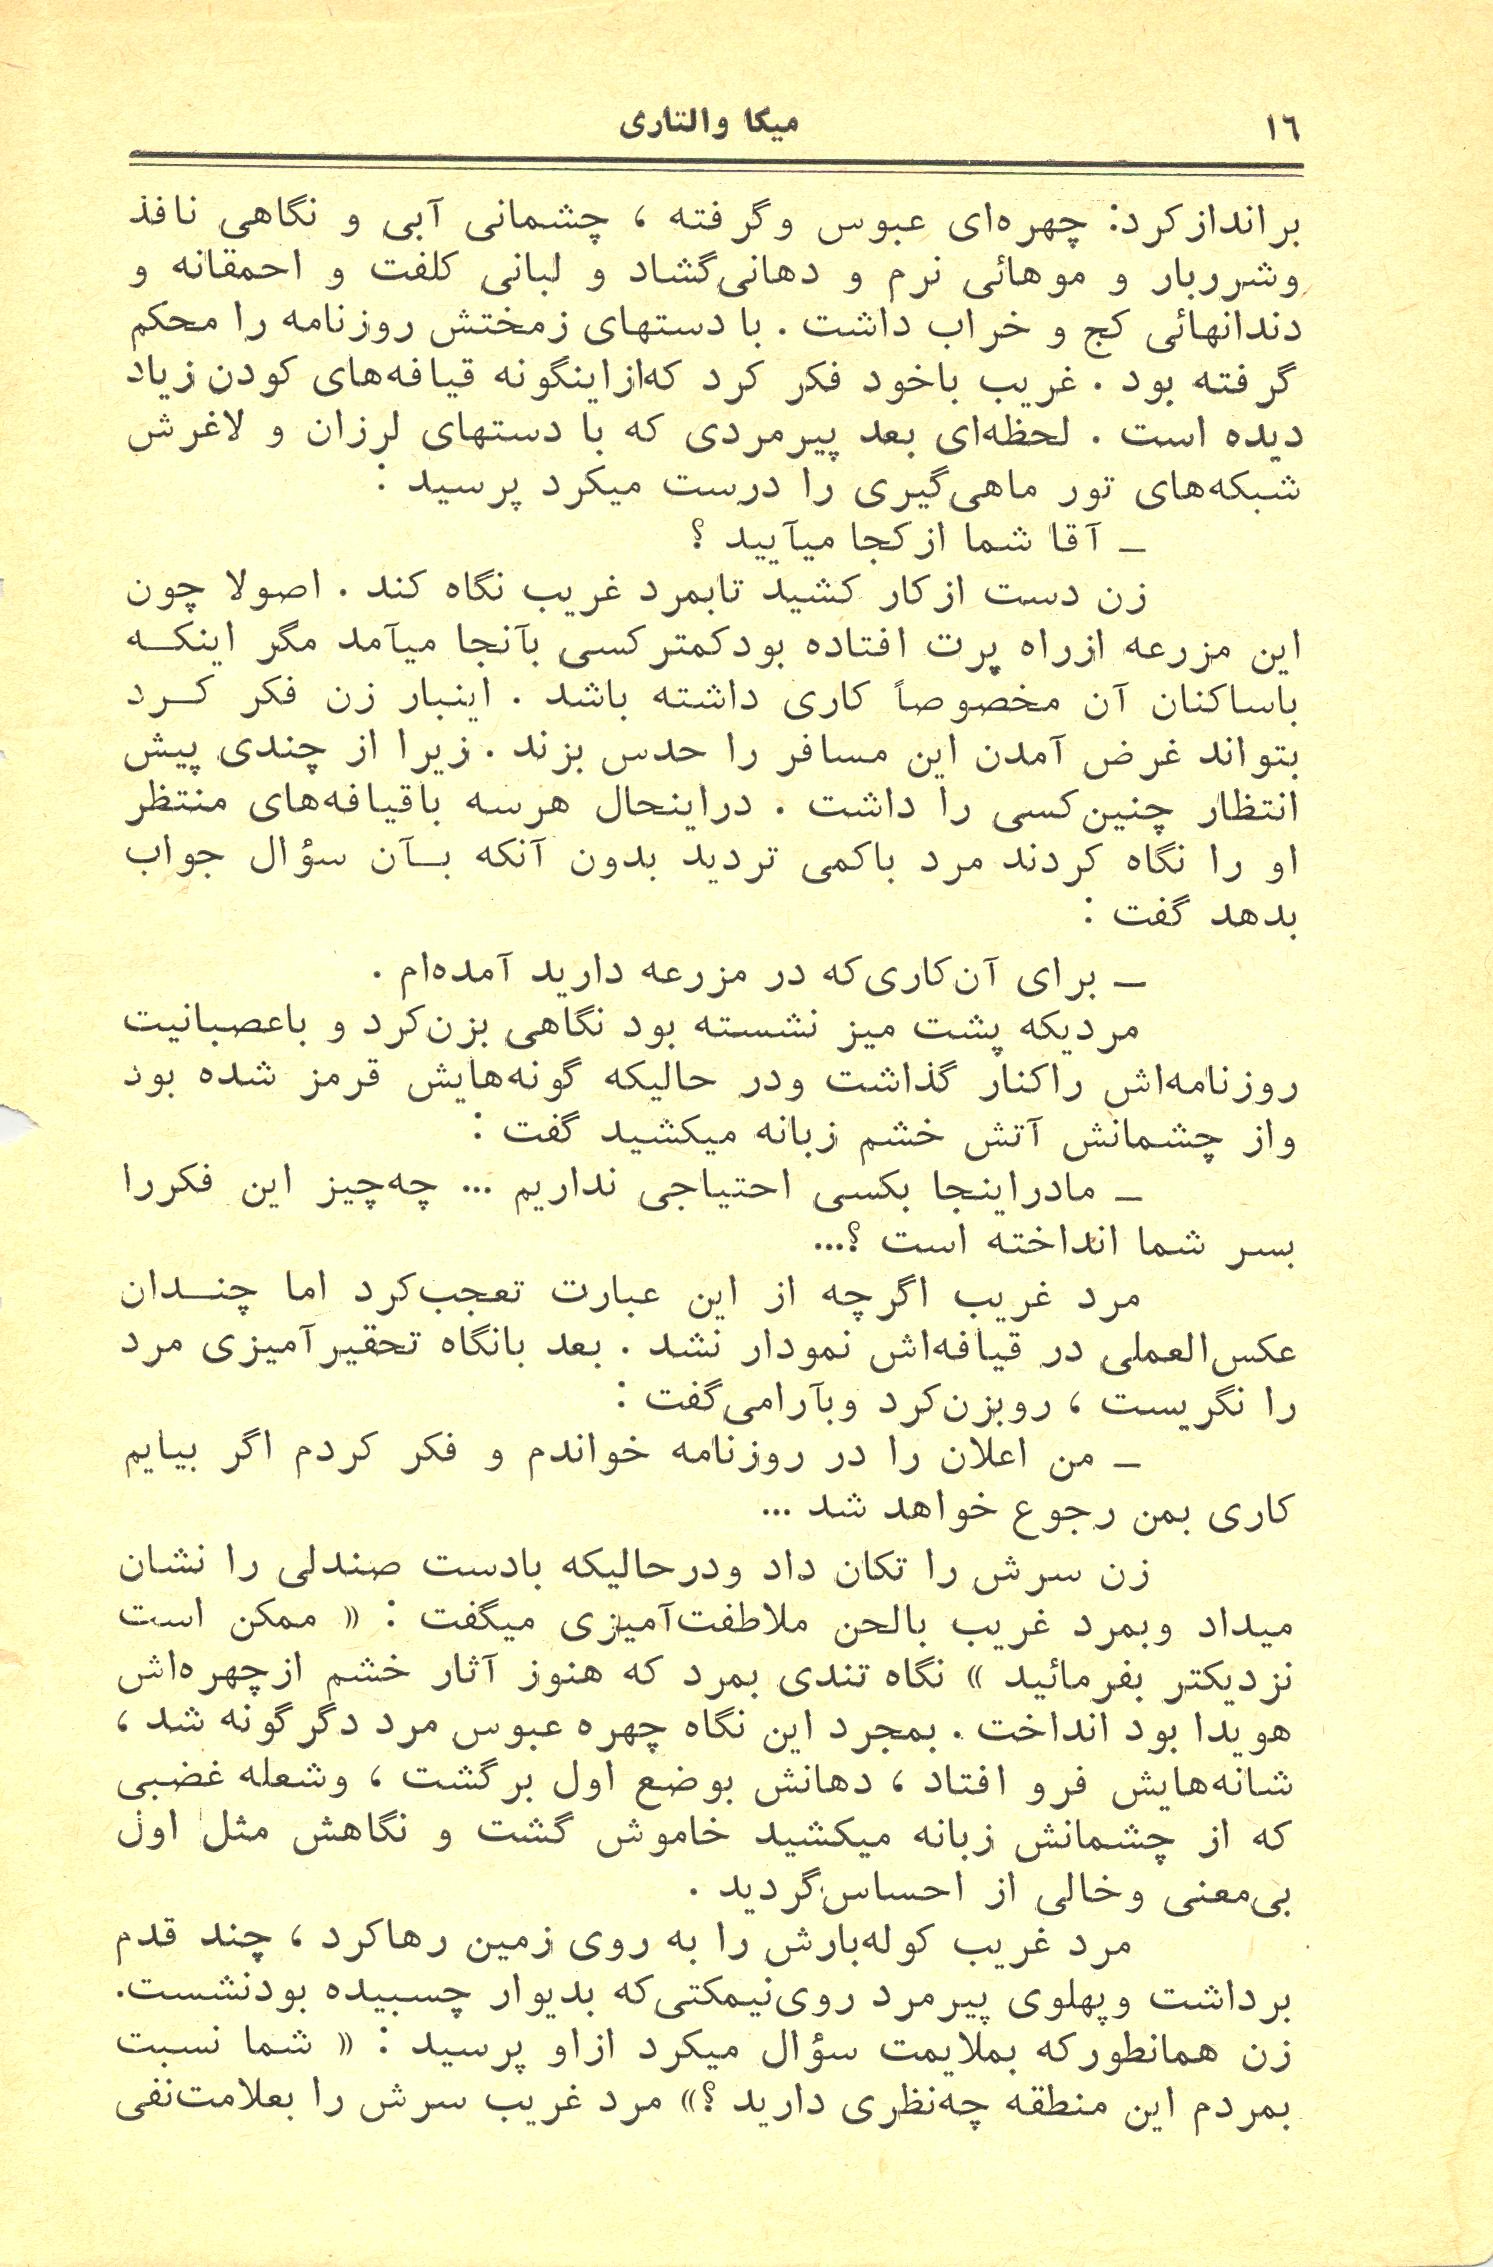 ۱۶
میکا والتاری
براندازکرد: چهره‌ای عبوس وگرفته ، چشمانی آبی و نگاهی نافذ
وشرربار و موهائی نرم و دهانی‌گشاد و لبانی کلفت و احمقانه و
دندانهائی کج و خراب داشت . با دستهای زمختش روزنامه را محکم
گرفته بود . غریب باخود فکر کرد که‌ازاینگونه قیافه‌های کودن زیاد
دیده است . لحظه‌ای بعد پیرمردی که با دستهای لرزان و لاغرش
شبکه‌های تور ماهی‌گیری را درست میکرد پرسید :
ـ آقا شما ازکجا میآیید ؟
زن دست ازکار کشید تابمرد غریب نگاه کند . اصولا چون
این مزرعه ازراه پرت افتاده بودکمترکسی بآنجا میآمد مگر اینکــه
باساکنان آن مخصوصاً کاری داشته باشد . اینبار زن فکر کــرد
بتواند غرض آمدن این مسافر را حدس بزند . زیرا از چندی پیش
انتظار چنین‌کسی را داشت . دراینحال هرسه باقیافه‌های منتظر
او را نگاه کردند مرد باکمی تردید بدون آنکه بــآن سؤال جواب
بدهد گفت :
ـ برای آن‌کاری‌که در مزرعه دارید آمده‌ام .
مردیکه پشت میز نشسته بود نگاهی بزن‌کرد و باعصبانیت
روزنامه‌اش راکنار گذاشت ودر حالیکه گونه‌هایش قرمز شده بود
واز چشمانش آتش خشم زبانه میکشید گفت :
ـ مادراینجا بکسی احتیاجی نداریم ... چه‌چیز این فکررا
بسر شما انداخته است ؟...
مرد غریب اگرچه از این عبارت تعجب‌کرد اما چنــدان
عکس‌العملی در قیافه‌اش نمودار نشد . بعد بانگاه تحقیرآمیزی مرد
را نگریست ، روبزن‌کرد وبآرامی‌گفت :
ـ من اعلان را در روزنامه خواندم و فکر کردم اگر بیایم
کاری بمن رجوع خواهد شد ...
زن سرش را تکان داد ودرحالیکه بادست صندلی را نشان
میداد وبمرد غریب بالحن ملاطفت‌آمیزی میگفت : « ممکن است
نزدیکتر بفرمائید » نگاه تندی بمرد که هنوز آثار خشم ازچهره‌اش
هویدا بود انداخت . بمجرد این نگاه چهره عبوس مرد دگرگونه شد ،
شانه‌هایش فرو افتاد ، دهانش بوضع اول برگشت ، وشعله غضبی
که از چشمانش زبانه میکشید خاموش گشت و نگاهش مثل اول
بی‌معنی وخالی از احساس‌گردید .
مرد غریب کوله‌بارش را به روی زمین رهاکرد ، چند قدم
برداشت وپهلوی پیرمرد روی‌نیمکتی‌که بدیوار چسبیده بودنشست.
زن همانطورکه بملایمت سؤال میکرد ازاو پرسید : « شما نسبت
بمردم این منطقه چه‌نظری دارید ؟» مرد غریب سرش را بعلامت‌نفی